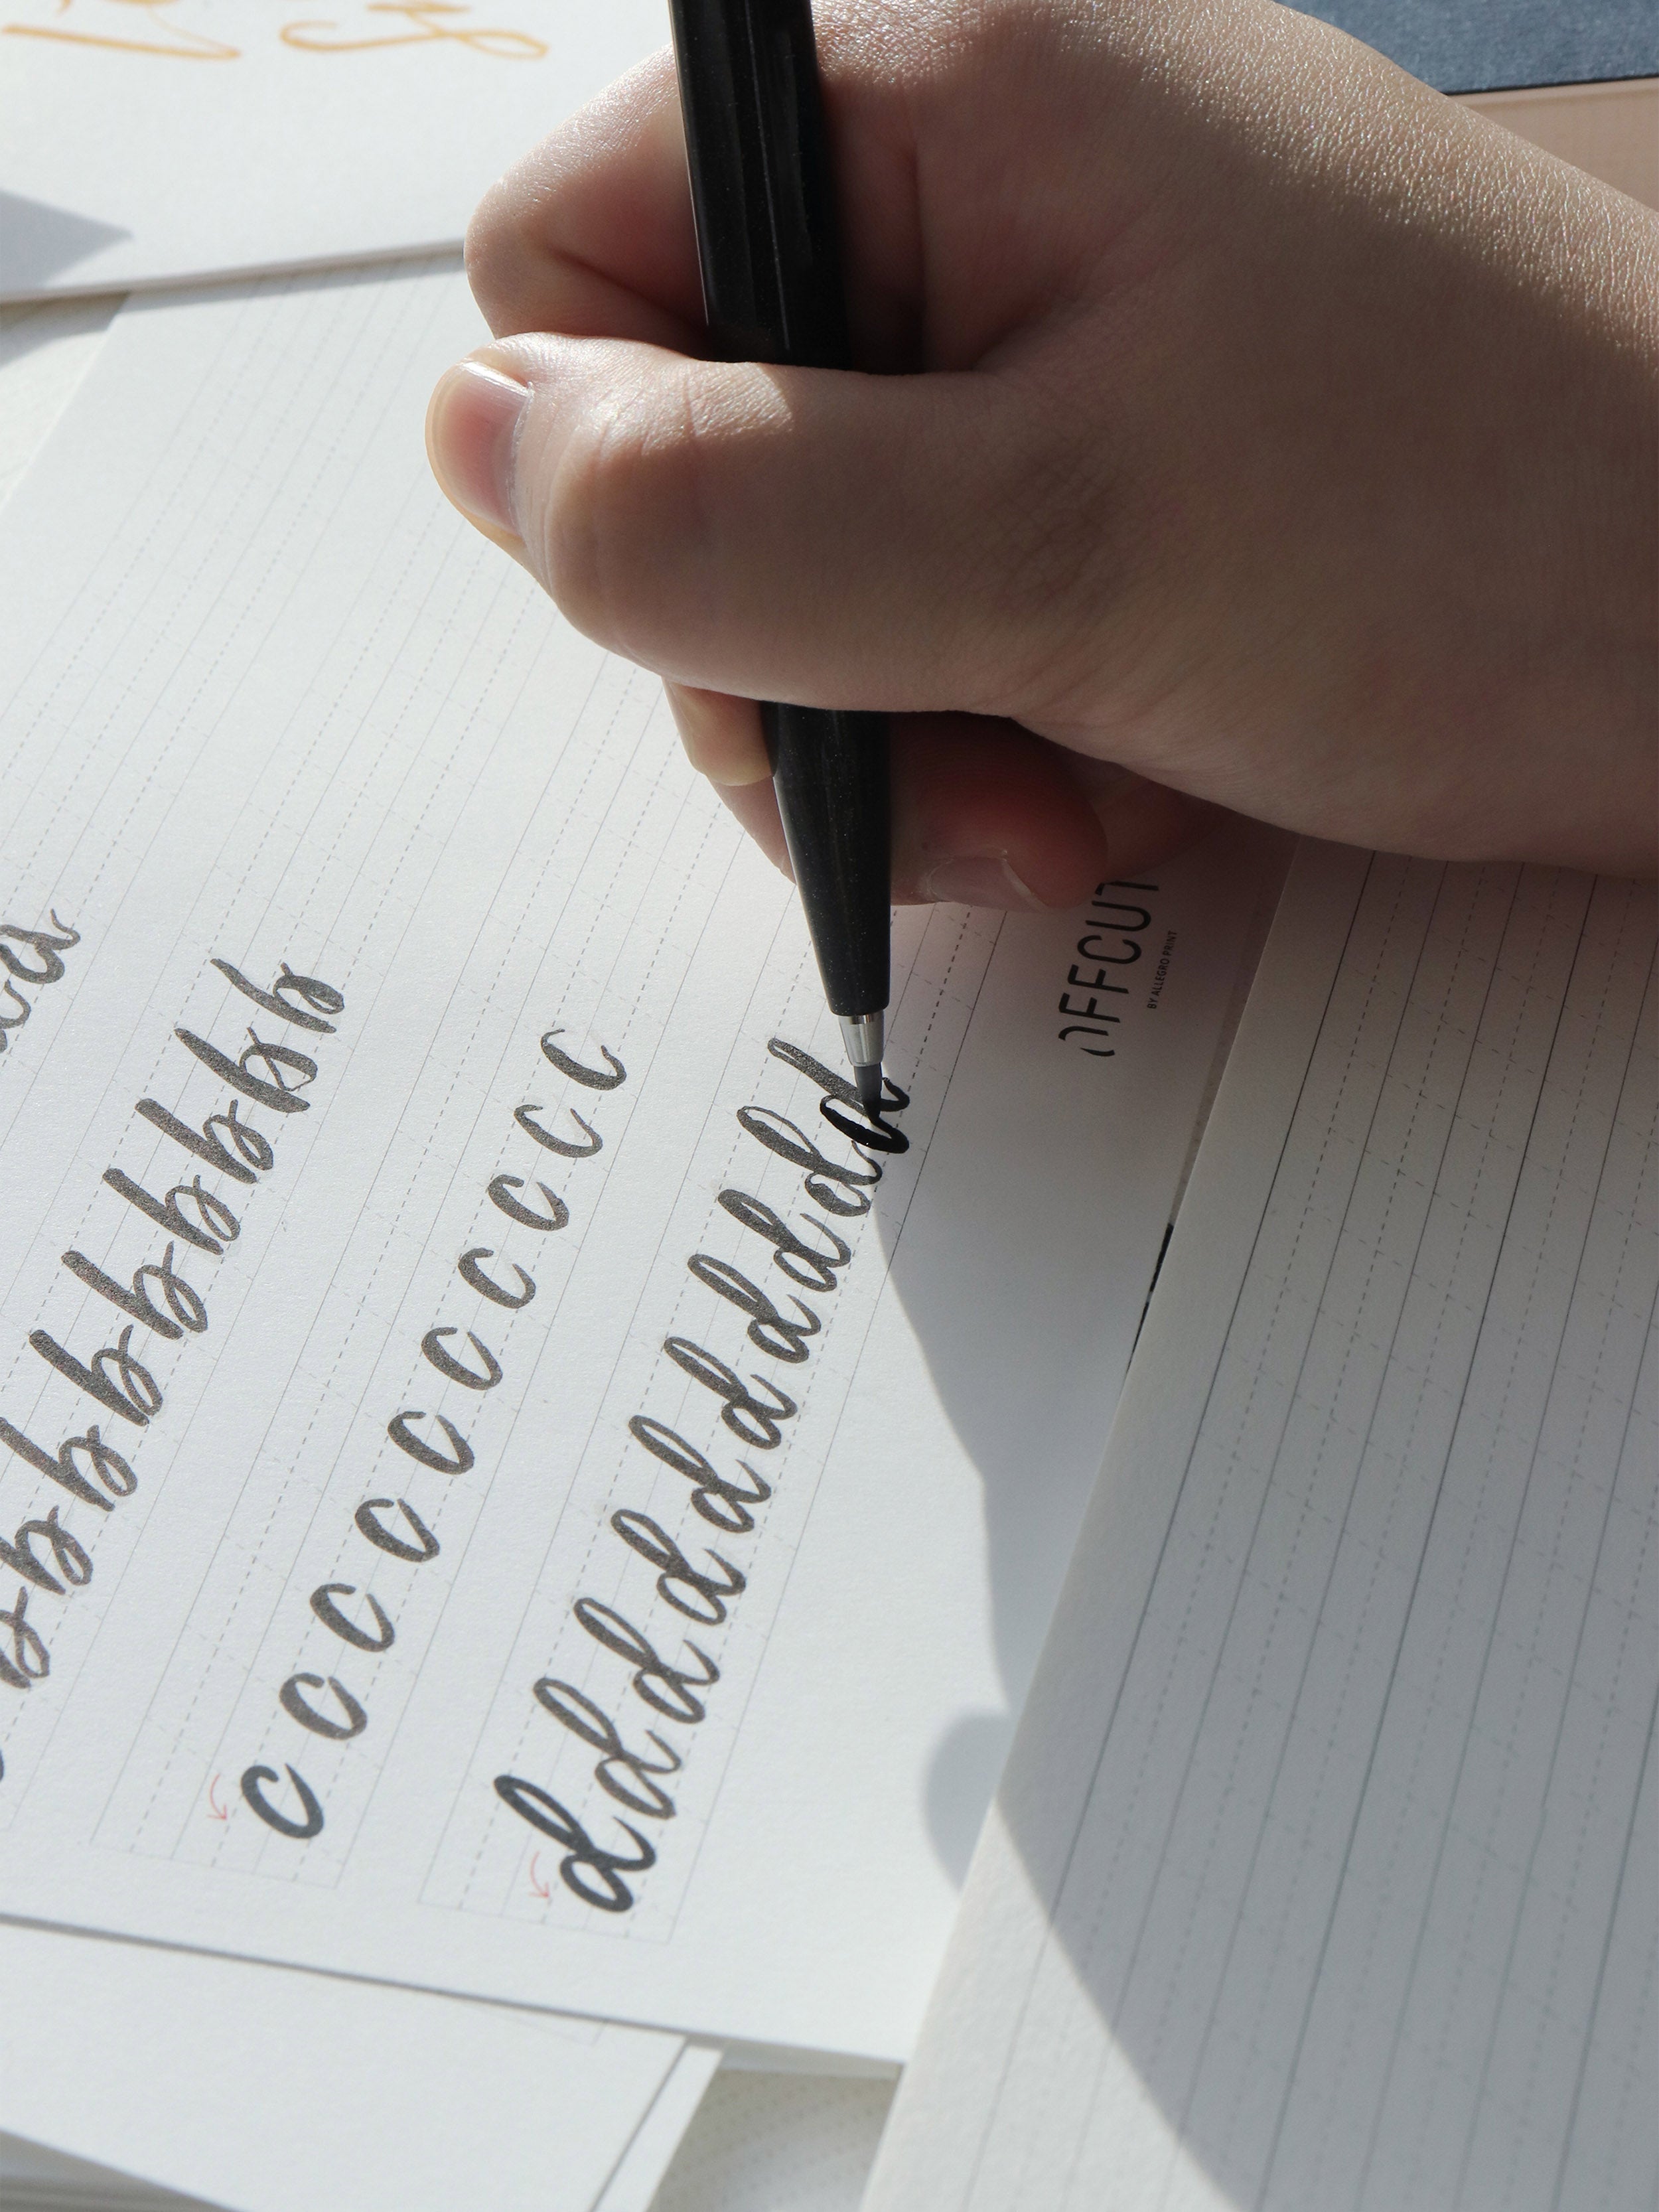 aa
bbbbbbbbb
cccccccccc
dddddddddd
OFFCUT
BY ALLEGRO PRINT